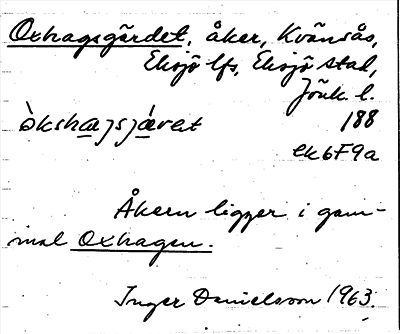 Oxhagsgärdet, åker, Kvänsås,
Eksjö lfs, Eksjö stad,
Jönk. l.
òkshaɡsjǽret 188
ek 6F9a
Åkern ligger i gam-
mal Oxhagen.
Inger Danielsson 1963.